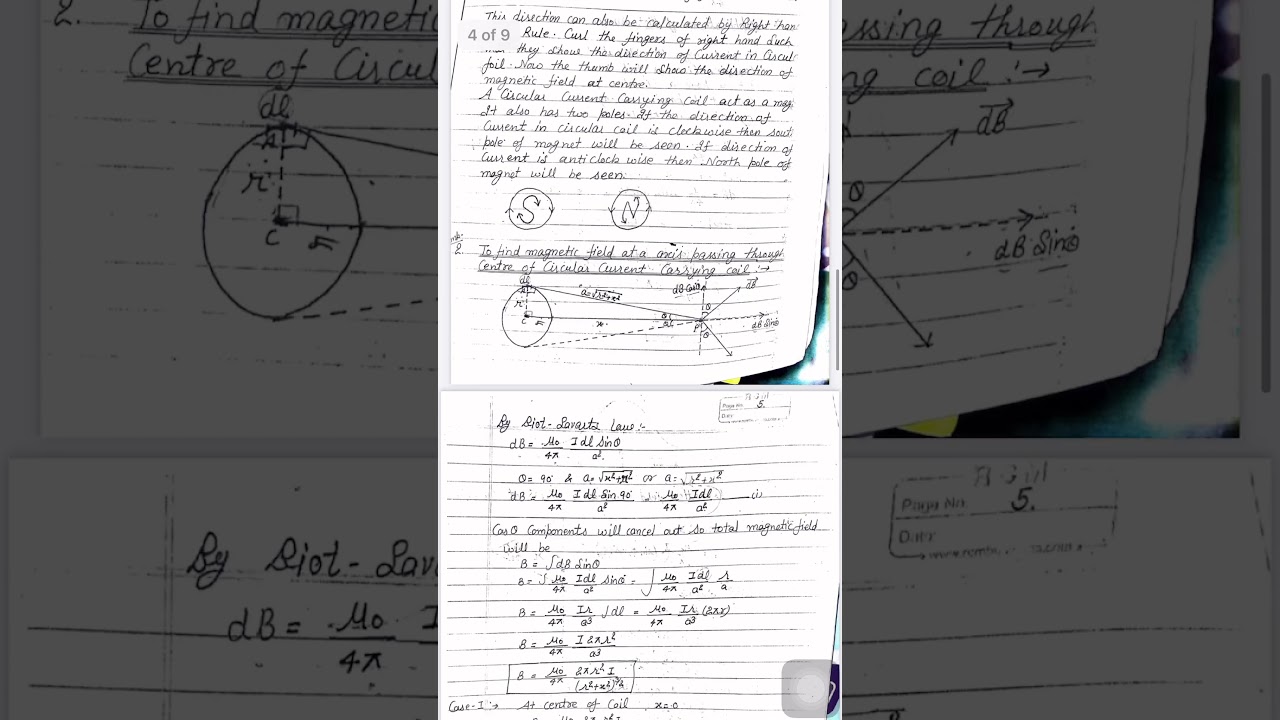 This direction can also be calculated by Right han
4 of 9
Rule. Curl the fingers of right hand such
they show the direction of current in circul
foil. Now the thumb will show the direction of
magnetic field at centre.
A Circular Current Carrying Coil act as a mag
It also has two poles. If the direction of
Current in circular coil is clockwise then sout
pole of magnet will be seen. If direction of
Current is anticlock wise then North pole of
magnet will be seen.
S N
2. To find magnetic field at a axis passing through
Centre of Circular Current Carrying coil :→
dl
r
c
r
x
a=√r²+x²
dB cosθ
dB
θ
P
θ
dB sinθ
Page No. 5.
Date
By Biot-Savarts Law :-
dB = μ₀/4π Idl sinθ/a²
θ = 90 & a = √x²+r² or a = √r²+x²
dB = μ₀/4π Idl sin 90/a² = μ₀/4π Idl/a² — (i)
Cosθ Components will cancel out so total magnetic field
will be
B = ∫dB sinθ
B = ∫ μ₀/4π Idl/a² sinθ = ∫ μ₀/4π Idl/a² r/a
B = μ₀/4π Ir/a³ ∫dl = μ₀/4π Ir/a³ (2πr)
B = μ₀/4π I2πr²/a³
B = μ₀/4π 2πr²I/(r²+x²)^3/2
Case-I :→ At centre of Coil x=0
2. To find magnetic
Centre of Circul
dl
r
c
r
ssing through
ng coil :→
dB
θ
dB Sinθ
θ
By Biot-Sava
dB = μ₀ I
4π
Page No. 5.
Date